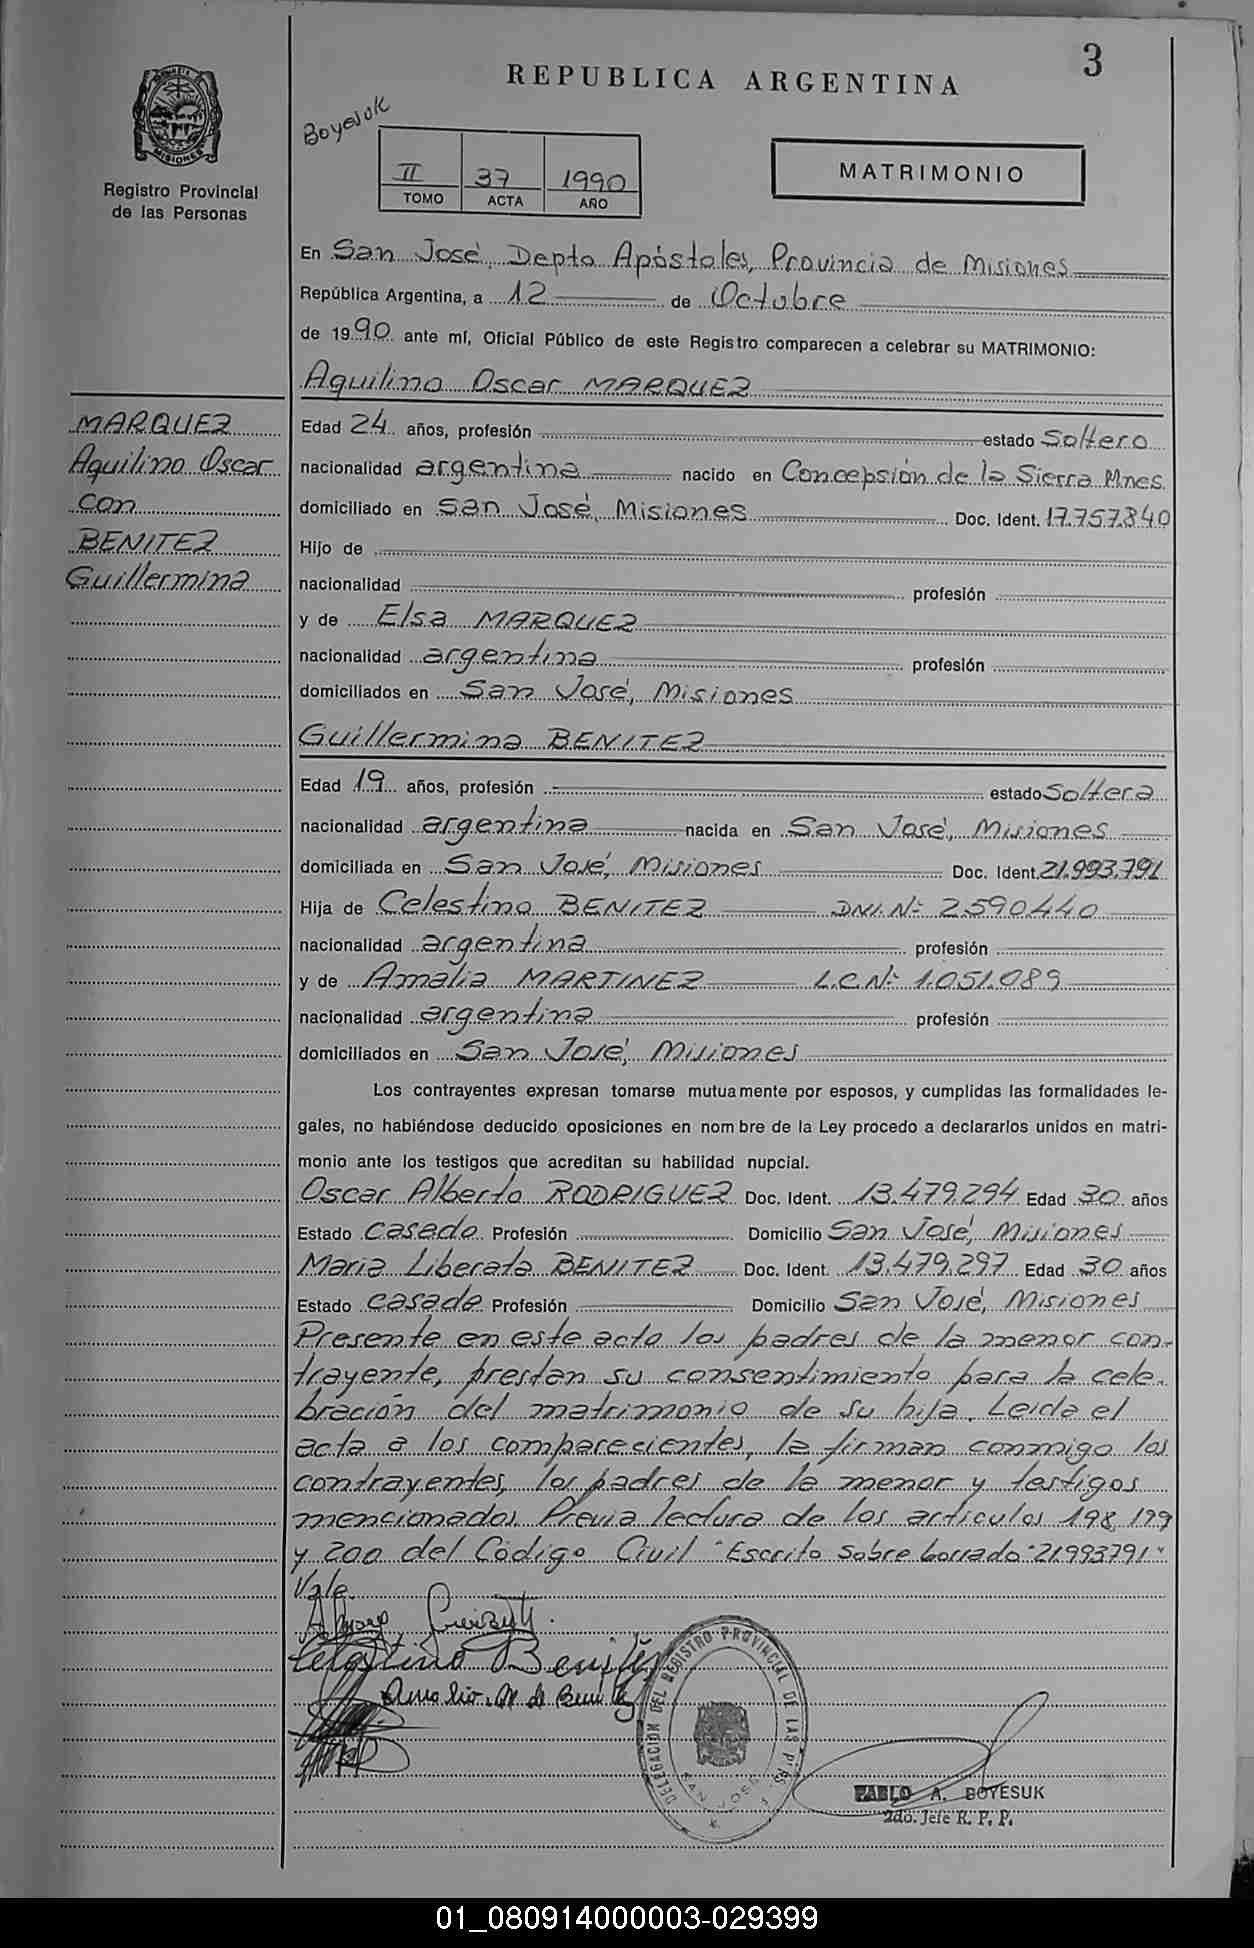 3
REPUBLICA ARGENTINA
Boyesuk
MISIONES
Registro Provincial
de las Personas
II 37 1990
TOMO ACTA AÑO
MATRIMONIO
En San José, Depto Apóstoles, Provincia de Misiones
República Argentina, a 12 de Octubre
de 1990 ante mí, Oficial Público de este Registro comparecen a celebrar su MATRIMONIO:
Aquilino Oscar MARQUEZ
MARQUEZ
Aquilino Oscar
con
BENITEZ
Guillermina
Edad 24 años, profesión estado Soltero
nacionalidad argentina nacido en Concepsión de la Sierra Mnes.
domiciliado en San José, Misiones Doc. Ident. 17.757.840
Hijo de
nacionalidad profesión
y de Elsa MARQUEZ
nacionalidad argentina profesión
domiciliados en San José, Misiones
Guillermina BENITEZ
Edad 19 años, profesión estado Soltera
nacionalidad argentina nacida en San José, Misiones
domiciliada en San José, Misiones Doc. Ident. 21.993.791
Hija de Celestino BENITEZ DNI. Nº 2590440
nacionalidad argentina profesión
y de Amalia MARTINEZ L.C. Nº 1.051.089
nacionalidad argentina profesión
domiciliados en San José, Misiones
Los contrayentes expresan tomarse mutuamente por esposos, y cumplidas las formalidades le-
gales, no habiéndose deducido oposiciones en nombre de la Ley procedo a declararlos unidos en matri-
monio ante los testigos que acreditan su habilidad nupcial.
Oscar Alberto RODRIGUEZ Doc. Ident. 13.479.294 Edad 30 años
Estado casado Profesión Domicilio San José, Misiones
Maria Liberata BENITEZ Doc. Ident. 13.479.297 Edad 30 años
Estado casada Profesión Domicilio San José, Misiones
Presente en este acto los padres de la menor con-
trayente, prestan su consentimiento para la cele-
bración del matrimonio de su hija. Leida el
acta a los comparecientes, la firman conmigo los
contrayentes, los padres de la menor y testigos
mencionados. Previa lectura de los artículos 198, 199
y 200 del Código Civil "Escrito sobre borrado "21993791"
Vale.
Celestino Benitez
Amalia M de Benitez
DELEGACION DEL REGISTRO PROVINCIAL DE LAS PERS.
SAN JOSE
PABLO A. BOYESUK
2do. Jefe R. P. P.
01_080914000003-029399